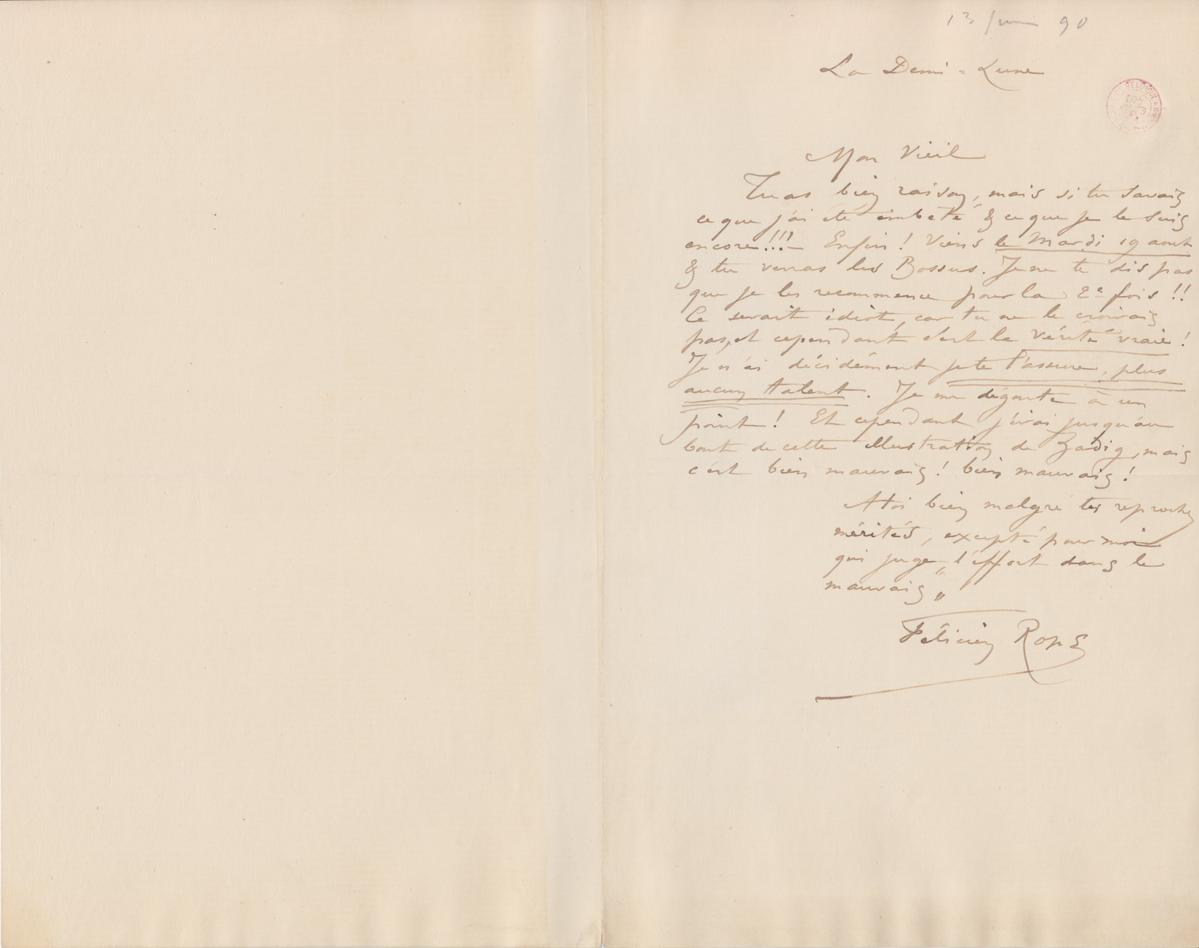 13 Juin 90
La Demi-Lune
Mon Vieil
Tu as bien raison, mais si tu savais
ce que j'ai été embêté & ce que je le suis
encore!!!- Enfin! Viens le Mardi 19 aout
& tu verras les Bossus. Je ne te dis pas
que je les recommence pour la 2e fois!!
Ce serait idiot, car tu ne le croirais
pas, et cependant c'est la vérité vraie!
Je n'ai décidément je te l'assure, plus
aucun talent. Je me dégoute à un
point! Et cependant j'irai jusqu'au
bout de cette illustration de Zadig, mais
c'est bien mauvais! bien mauvais!
A toi bien malgré tes reproches
mérités, excepté pour moi
qui juge „l'éffort dans le
mauvais„
Félicien Rops